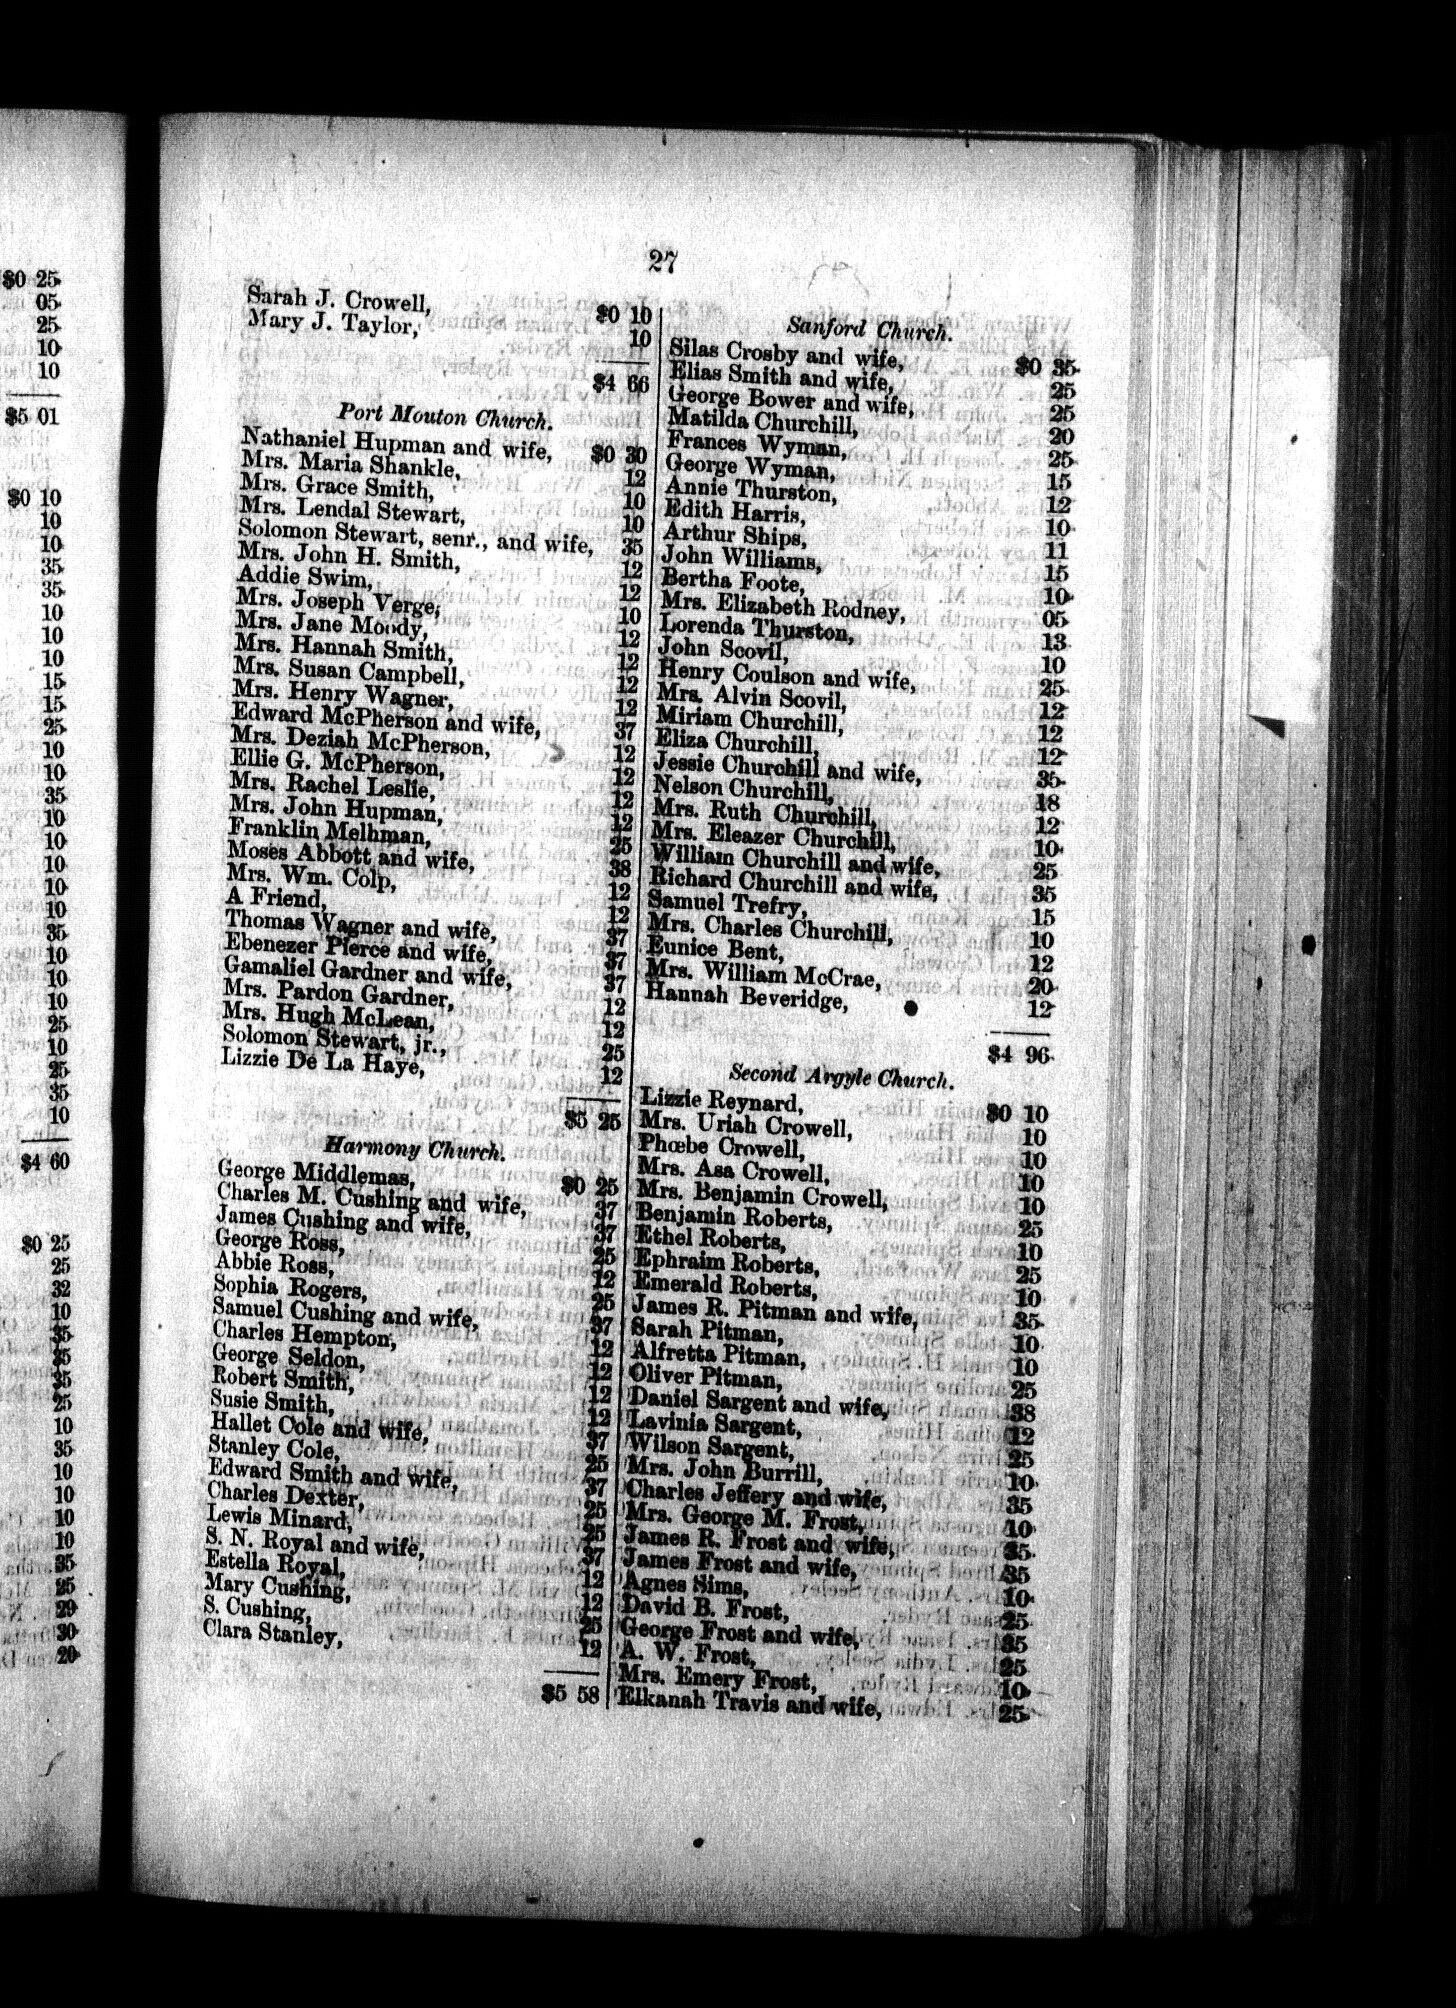 $0 25
05
25
10
10
$5 01
$0 10
10
10
35
35
10
10
10
15
15
25
10
10
35
10
10
10
10
10
35
10
10
10
25
10
25
35
10
$4 60
$0 25
25
32
10
35
35
35
25
10
35
10
10
10
10
35
25
29
30
20
27
Sarah J. Crowell, $0 10
Mary J. Taylor, 10
$4 66
Port Mouton Church.
Nathaniel Hupman and wife, $0 30
Mrs. Maria Shankle, 12
Mrs. Grace Smith, 10
Mrs. Lendal Stewart, 10
Solomon Stewart, senr., and wife, 35
Mrs. John H. Smith, 12
Addie Swim, 12
Mrs. Joseph Verge, 10
Mrs. Jane Moody, 12
Mrs. Hannah Smith, 12
Mrs. Susan Campbell, 12
Mrs. Henry Wagner, 12
Edward McPherson and wife, 37
Mrs. Deziah McPherson, 12
Ellie G. McPherson, 12
Mrs. Rachel Leslie, 12
Mrs. John Hupman, 12
Franklin Melhman, 25
Moses Abbott and wife, 38
Mrs. Wm. Colp, 12
A Friend, 12
Thomas Wagner and wife, 37
Ebenezer Pierce and wife, 37
Gamaliel Gardner and wife, 37
Mrs. Pardon Gardner, 12
Mrs. Hugh McLean, 12
Solomon Stewart, jr., 25
Lizzie De La Haye, 12
$5 25
Harmony Church.
George Middlemas, $0 25
Charles M. Cushing and wife, 37
James Cushing and wife, 37
George Ross, 25
Abbie Ross, 12
Sophia Rogers, 25
Samuel Cushing and wife, 37
Charles Hempton, 12
George Seldon, 12
Robert Smith, 12
Susie Smith, 12
Hallet Cole and wife, 37
Stanley Cole, 25
Edward Smith and wife, 37
Charles Dexter, 25
Lewis Minard, 25
S. N. Royal and wife, 37
Estella Royal, 12
Mary Cushing, 12
S. Cushing, 25
Clara Stanley, 12
$5 58
Sanford Church.
Silas Crosby and wife, $0 35
Elias Smith and wife, 25
George Bower and wife, 25
Matilda Churchill, 20
Frances Wyman, 25
George Wyman, 15
Annie Thurston, 12
Edith Harris, 10
Arthur Ships, 11
John Williams, 15
Bertha Foote, 10
Mrs. Elizabeth Rodney, 05
Lorenda Thurston, 13
John Scovil, 10
Henry Coulson and wife, 25
Mrs. Alvin Scovil, 12
Miriam Churchill, 12
Eliza Churchill, 12
Jessie Churchill and wife, 35
Nelson Churchill, 18
Mrs. Ruth Churchill, 12
Mrs. Eleazer Churchill, 10
William Churchill and wife, 25
Richard Churchill and wife, 35
Samuel Trefry, 15
Mrs. Charles Churchill, 10
Eunice Bent, 12
Mrs. William McCrae, 20
Hannah Beveridge, 12
$4 96
Second Argyle Church.
Lizzie Reynard, $0 10
Mrs. Uriah Crowell, 10
Phœbe Crowell, 10
Mrs. Asa Crowell, 10
Mrs. Benjamin Crowell, 10
Benjamin Roberts, 25
Ethel Roberts, 10
Ephraim Roberts, 25
Emerald Roberts, 10
James R. Pitman and wife, 35
Sarah Pitman, 10
Alfretta Pitman, 10
Oliver Pitman, 25
Daniel Sargent and wife, 38
Lavinia Sargent, 12
Wilson Sargent, 25
Mrs. John Burrill, 10
Charles Jeffery and wife, 35
Mrs. George M. Frost, 10
James R. Frost and wife, 35
James Frost and wife, 35
Agnes Sims, 10
David B. Frost, 25
George Frost and wife, 35
A. W. Frost, 25
Mrs. Emery Frost, 10
Elkanah Travis and wife, 25